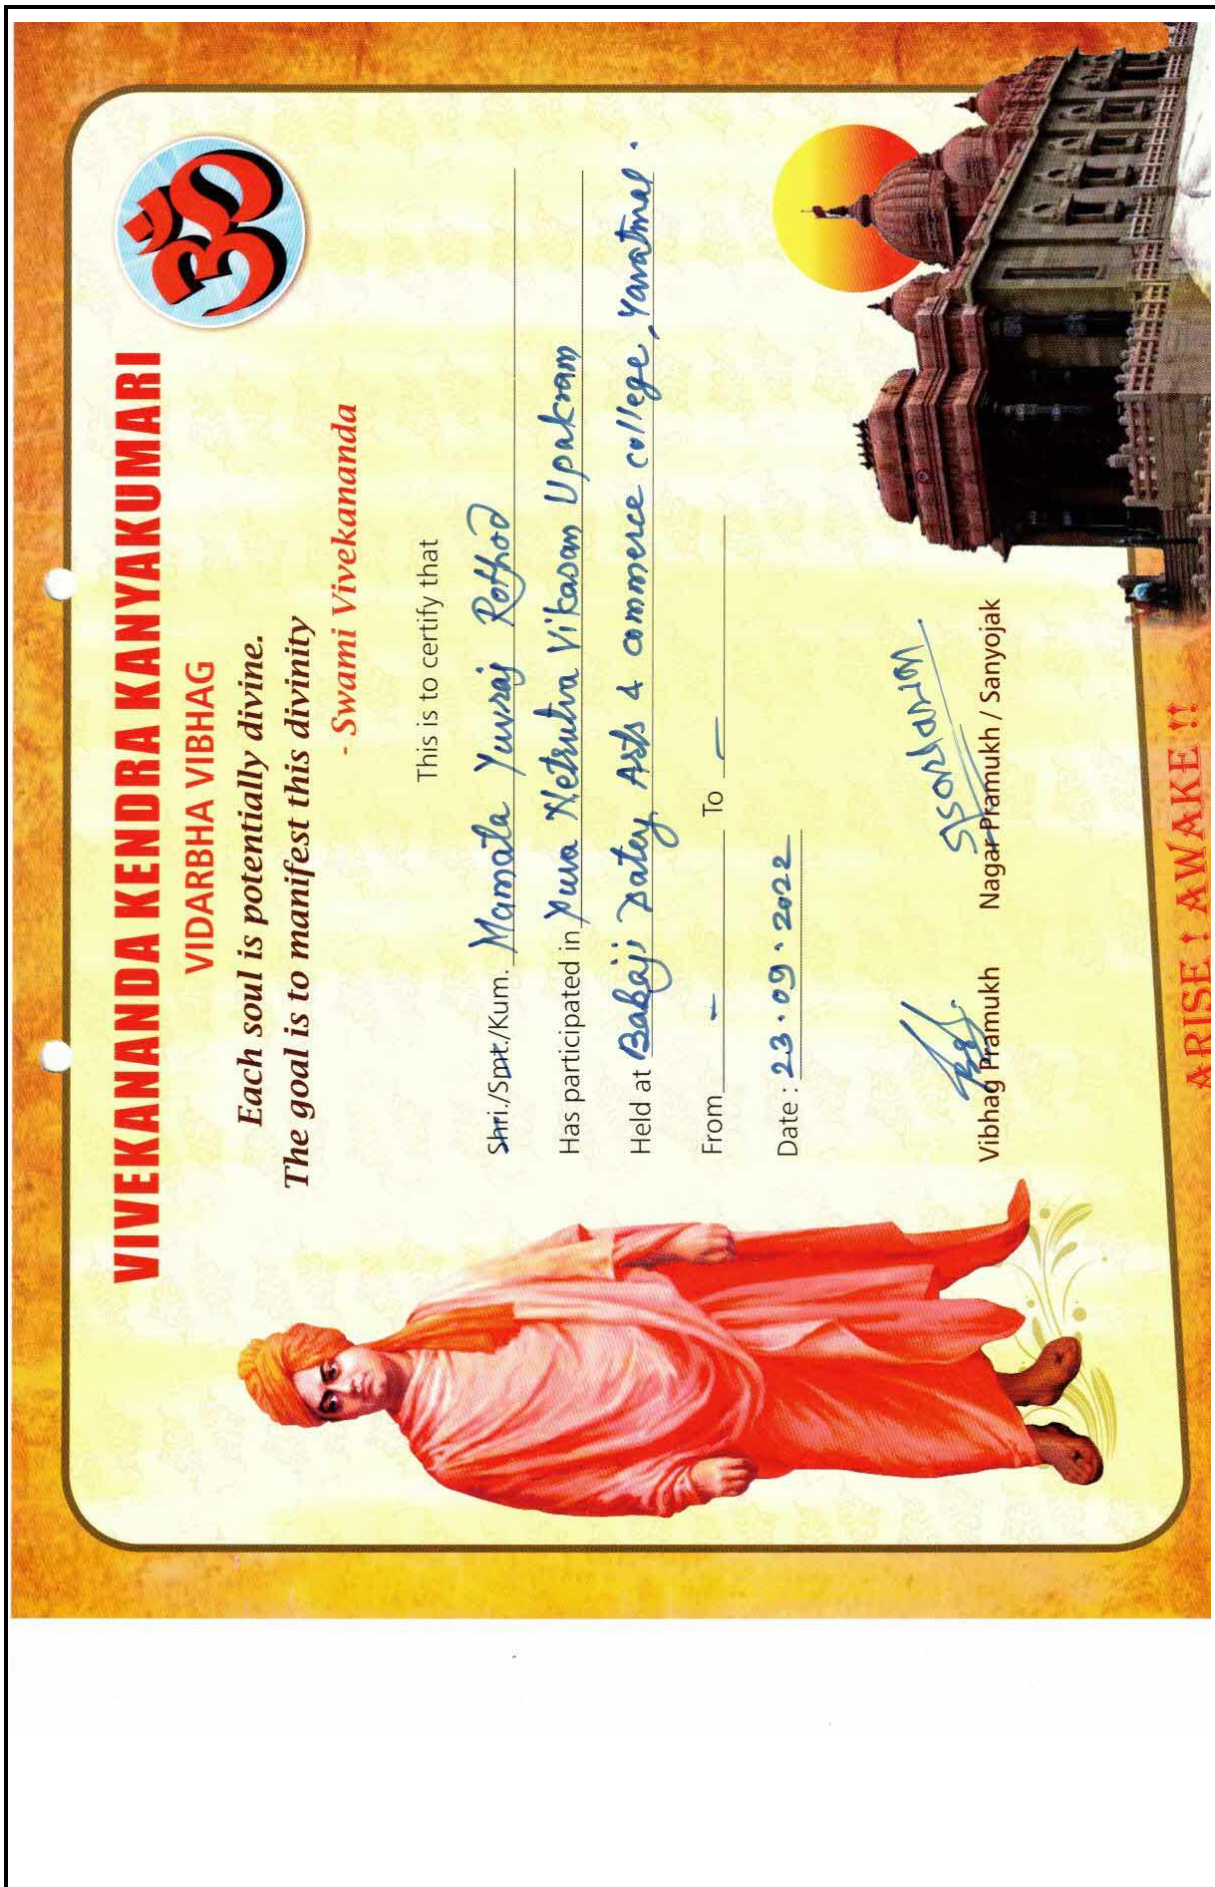 ॐ
VIVEKANANDA KENDRA KANYAKUMARI
VIDARBHA VIBHAG
Each soul is potentially divine.
The goal is to manifest this divinity
- Swami Vivekananda
This is to certify that
Shri./Smt./Kum. Mamata Yuvraj Rathod
Has participated in Yuva Netrutva Vikasan Upakram
Held at Babaji Datey Arts & commerce college, Yavatmal.
From - To -
Date : 23.09.2022
Vibhag Pramukh Nagar Pramukh / Sanyojak
ARISE ! AWAKE !!